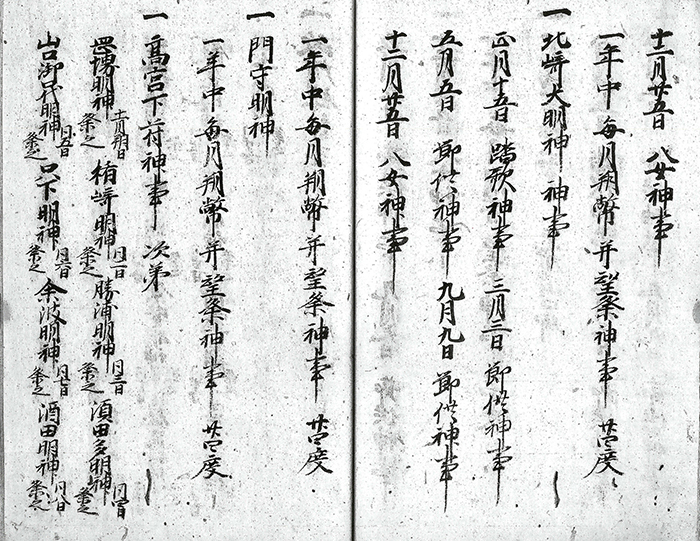 十二月廿五日 八女神事
一年中毎月朔幣并望祭神事 廿四度
一 北崎大明神 神事
正月十五日 踏歌神事 三月三日 節供神事
五月五日 節供神事 九月九日 節供神事
十二月廿五日 八女神事
一年中毎月朔幣并望祭神事 廿四度
一 門守明神
一年中毎月朔幣并望祭神事 廿四度
一 高宮下府神事 次第
明神 十一月朔日 祭之 楯崎明神 同二日 祭之 勝浦明神 同三日 祭之 須田多明神 同四日 祭之
山口御明神 同五日 祭之 口下明神 同六日 祭之 余波明神 同七日 祭之 酒田明神 同八日 祭之